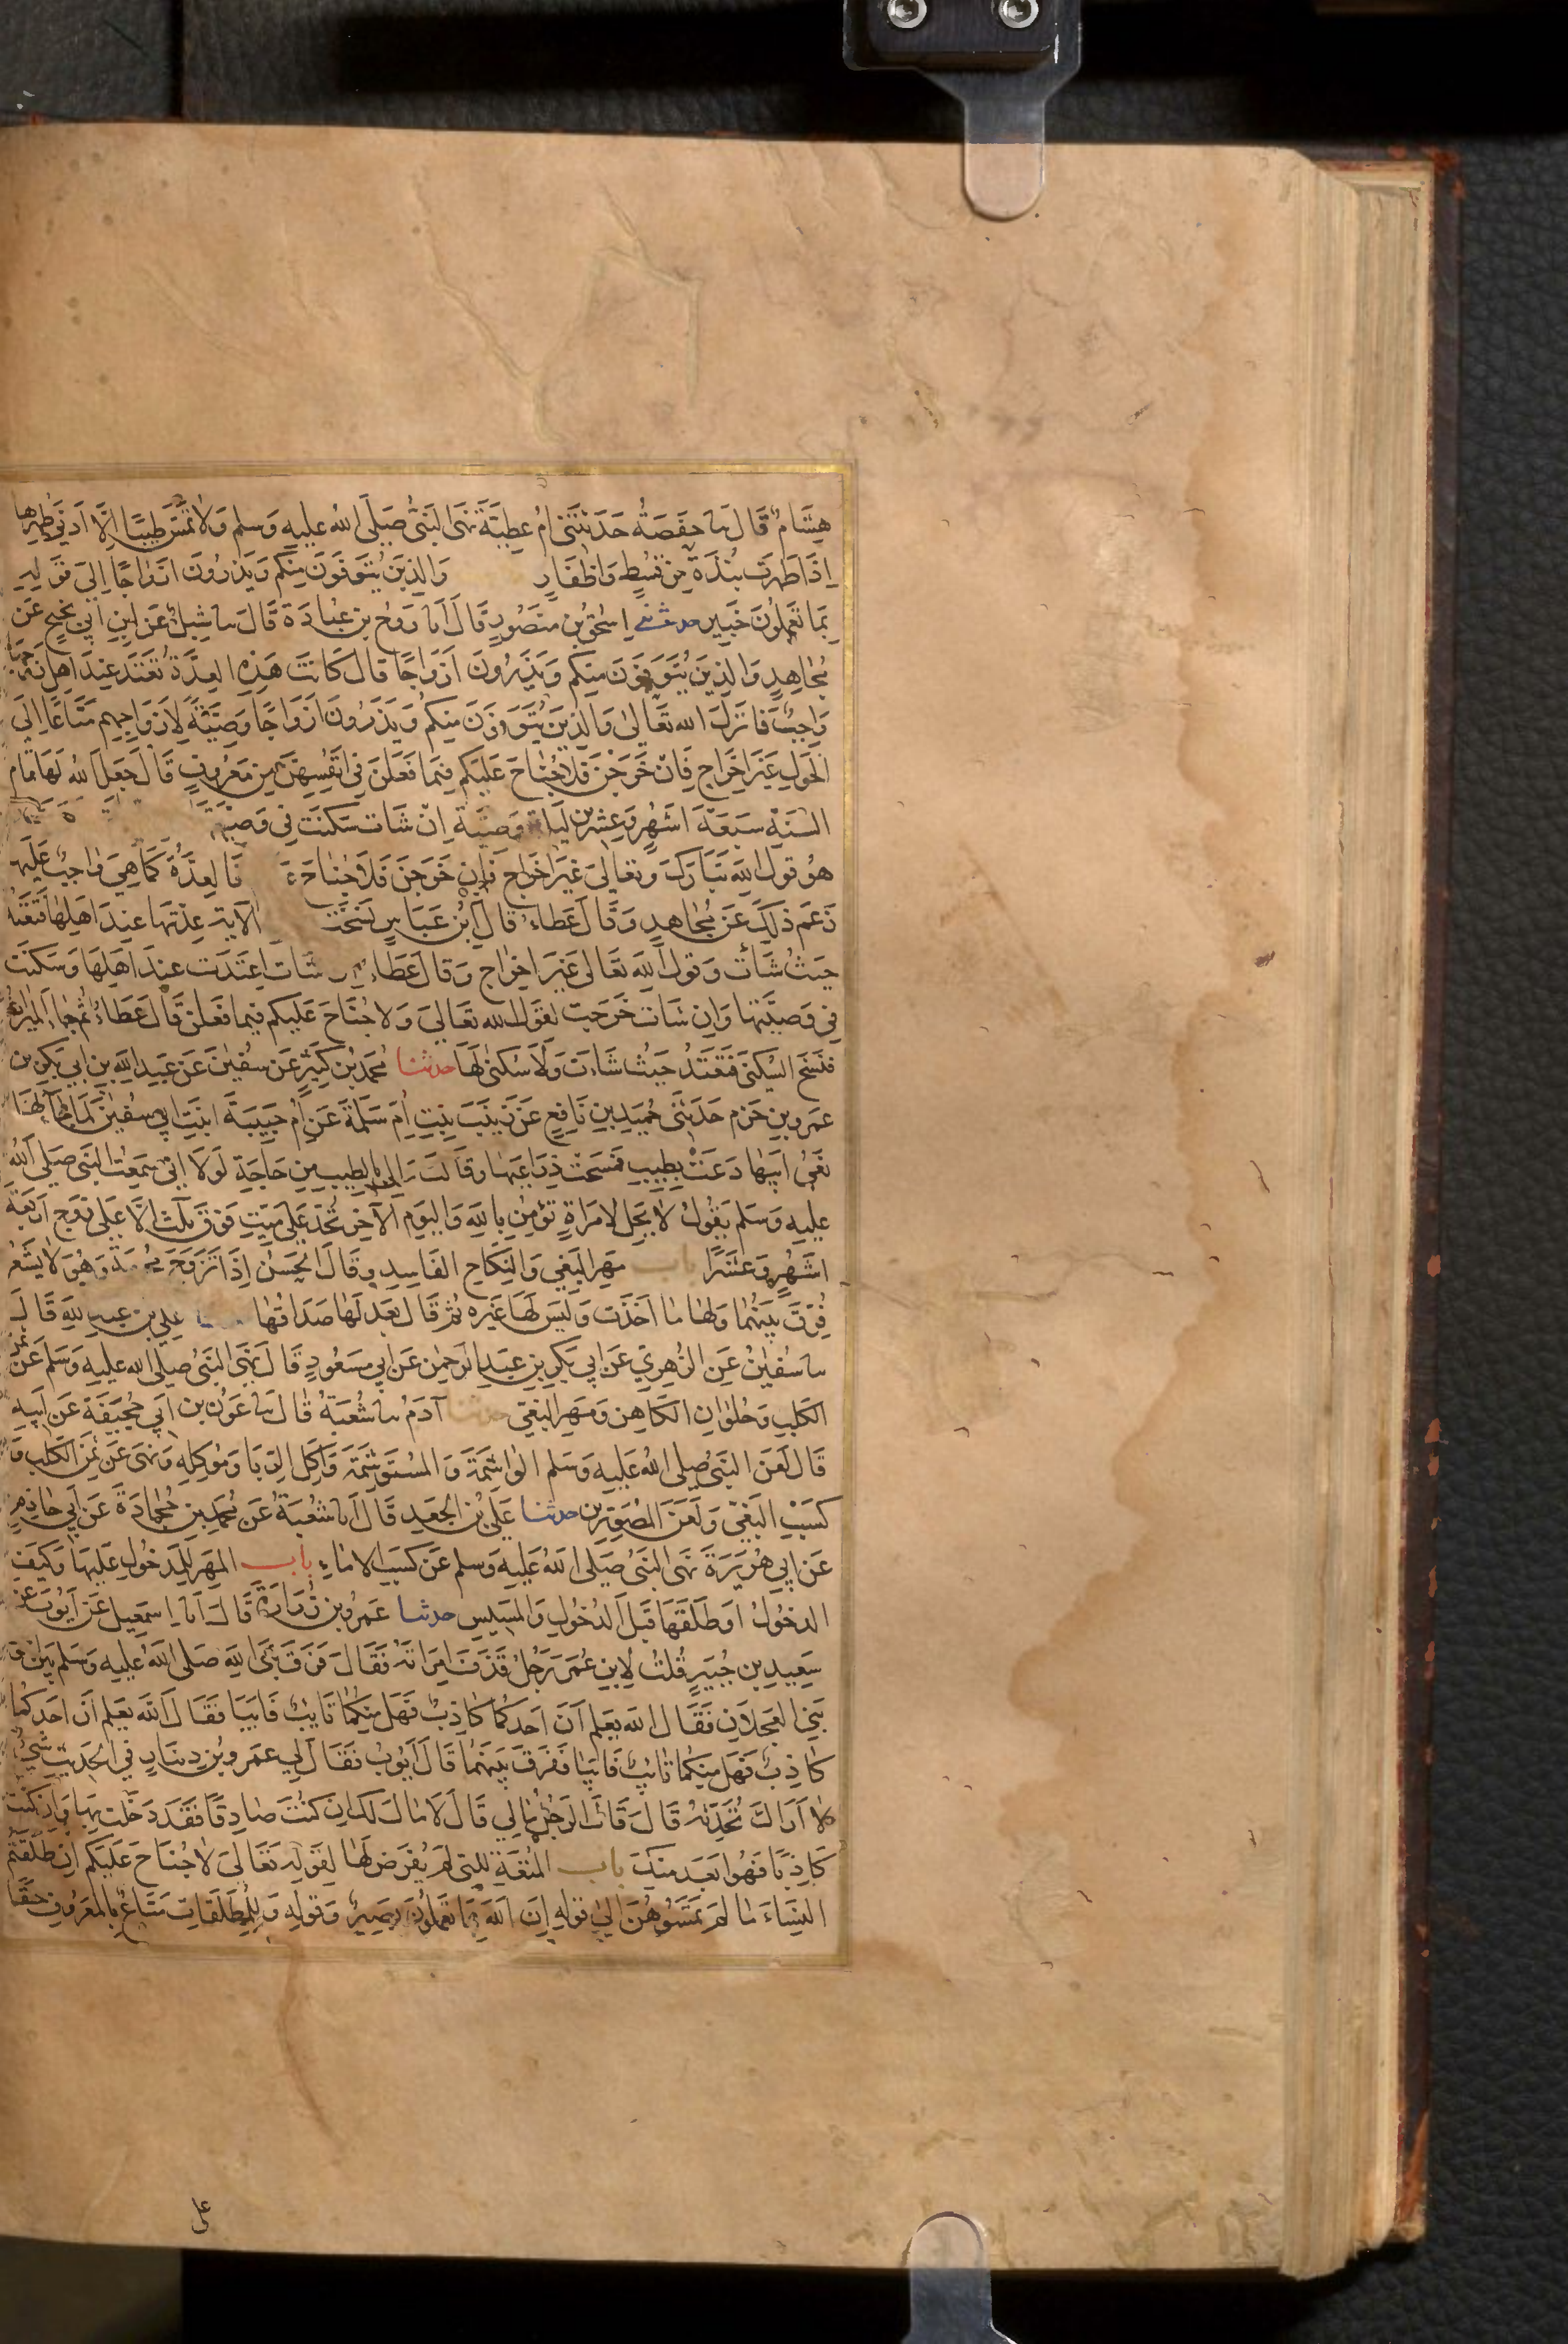 هِشَامٌ قَالَ نا حَفصَةُ حَدثتنى امُ عطِيَّةَ نهَى النبىُّ صَلَّى اللهُ عليه وَسلم وَلَا تَمَسَّ طِيبًا اِلَّا اَدنى طهرها
اِذَا طَهرت نبُذَةً مِن قسُطٍ وَاظفَارٍ وَالذِينَ يُتَوَفَّونَ مِنكم وَيَذرُونَ ازوَاجًا اِلىَ قَولِهِ
بمَا تعَملوُنَ خَبِير حدثنى اِسحٰقُ بن مَنصوُرٍ قَالَ انا رَوحُ بن عُبادَةَ قَالَ نا شِبلٌ عَن ابنِ ابى نجِيحٍ عَن
مُجاهِدٍ وَالذِينَ يُتَوَفَّونَ مِنكم وَيَذَرُونَ ازوَاجًا قال كَانَت هٰذِهِ العِدَّةُ تَعتَدُ عِندَ اهلِ زَوجهَا
وَاجِبٌ فانزَلَ الله تَعَالىٰ وَالذِينَ يُتَوَفَّونَ مِنكمُ وَيَذَرُونَ ازوَاجًا وَصِيَّةً لِازوَاجِهِم مَتَاعًا اِلىَ
الحَولِ غيَرَ اِخرَاجٍ فَاِن خَرَجنَ فَلَا جُنَاحَ عَليكم فِيمَا فعَلنَ فى انفُسِهِنَّ مِن مَعروُفٍ قَالَ جَعَلَ اللهُ لَهَا تَمَام
السَنَةِ سَبعَةَ اشهُرٍ وَعِشرِين لَيلَة وَصِيَّة اِن شَات سَكنَت فى وَصِيتها
هوُ قولُ الله تَبَارَكَ وتعَالىَ غيرَ اخرَاجٍ فَاِن خَرَجنَ فَلَا جُناحَ فَالعِدَّةُ كمَا هِيَ وَاجِبٌ عَلَيهَا
زَعمَ ذٰلِكَ عَن مُجَاهدٍ وَقَالَ عَطَاءٌ قَالَ ابنُ عَبَّاسٍ نَسَخَت الاية عِدَتهَا عِندَ اهَلِهَا فَتَعتَدُ
حَيثُ شَاَت وَقولُ اللهِ تعَالىَ غيرَ اخرَاج وَقالَ عَطَاء ان شَات اعتَدَت عِندَ اهلِهَا وَسَكنَت
فى وَصِيَّتِهَا وَان شَات خَرَجَت لقَولِ الله تعَالىَ وَلا جُنَاحَ عَليكم فيما فعَلن قَالَ عَطَاءٌ ثمَّ جَاء الميراثُ
فَنَسَخَ السُكنى فَتعَتدُ حَيثُ شَاءَت وَلَا سُكنىٰ لَهَا حدثنا محمدُ بن كَثِيرٍ عَن سُفيٰنَ عَن عَبدِ اللهِ بن ابى بَكرِ بن
عَمرو بن حَزم حَدثنى حُميدُ بن نَافِعٍ عَن زَينَبَ بِنتِ اُم سَلَمَةَ عَن امُ حَبِيبَةَ ابنَتِ ابى سُفيٰنَ لَمَّا جَاءهَا
نعَىُ ابِيهَا دَعَت بِطِيبٍ فمَسَحَت ذِرَاعَيهَا وقَالَت مَالى بِالطِيبِ مِن حَاجَةٍ لَولَا انى سَمعِتُ النَبىَّ صَلىَّ اللهُ
عليهِ وَسَلم يَقُولُ لَا يَحِلُ لِامرَاةٍ تؤمِن بِاللهِ وَاليَومِ الاخِرِ تُحدُّ عَلى مَيّتٍ فَوقَ ثلٰثٍ الَّا عَلى زوجٍ اربَعَةَ
اشهُرٍ وَعَشرًا باب مَهرِ البَغِىِ وَالنِكاحِ الفَاسِدِ وقَالَ الحَسَنُ اِذَا تَزَوَّجَ مُحرمَةً وَهوَ لَا يَشعُرُ
فُرِّقَ بَينَهُمَا وَلهَا مَا اخَذَت وَليسَ لَهَا غيَرُهُ ثمَّ قَالَ بَعدُ لَهَا صَدَاقُهَا حدثنا على بن عبدِ اللهِ قَالَ
نا سُفيٰنُ عَنِ الزُهرِيِ عَن ابى بَكرِ بن عَبدِ الرحمٰن عَن ابى مَسعُودٍ قَالَ نهَى النَبىُ صلى الله عليه وَسَلم عَن ثمن
الكَلبِ وَحُلوَانِ الكَاهِنِ وَمَهرِ البَغىِّ حدثنا آدَمُ نا شُعبَةُ قَالَ نا عَونُ بن ابى جُحَيفَةَ عَن ابِيهِ
قَالَ لَعَنَ النَبىُّ صَلى اللهُ عَليهِ وَسَلم الوَاشِمَةَ وَالمُستَوشِمَةَ وَآكِلَ الرِبَا وَموُكِلَهُ وَنهىَ عَن ثمَنِ الكَلبِ وَ
كَسبِ البَغىّ وَلَعَنَ المُصَوّرِين حدثنا عَلىُّ بن الجَعدِ قَالَ انا شعُبَةُ عَن محُمدِ بن جُحَادَةَ عَن ابى حَازِمٍ
عَن ابى هُرَيرَةَ نهَى النَبىُّ صَلى اللهُ عَليهِ وَسلم عَن كَسبِ الامَاءِ باب المَهرِ لِلمَدخُولِ عَليهَا وَكيَفَ
الدخُولُ اوطَلَقَهَا قَبلَ الدُخُولِ وَالمَسِيسِ حدثنا عَمرُو بن زُرَارَةَ قَالَ انا اِسمٰعِيل عَن ايُوبَ عَن
سَعِيدِ بن جُبَيرٍ قُلتُ لِابنِ عُمَرَ رَجُلٌ قَذَفَ امرَاتَهُ فقَالَ فَرَّقَ نَبىُّ اللهِ صَلى اللهُ عليهِ وَسلم بَين
بَنِى العَجلَانِ فَقَال الله يَعلم اَنَ احَدكمَا كَاذِبٌ فَهَل مِنكمَا تَايبٌ فَابَيَا فَقَال اللهَ يَعلم اَن احَدكمَا
كَاذِبٌ فَهَل مِنكمَا تايبٌ فَابَيَا فَفرَّقَ بَينَهُمَا قَالَ ايُوبُ فَقَالَ لِى عَمرُو بن دِينَارٍ فى الحَديثِ شَىٌ
لَا اَرَاكَ تُحَدِّثهُ قَالَ قَالَ الرَجُلُ مَالِي قَالَ لَا مَالَ لكَ اِن كنُتَ صَادِقًا فَقَد دَخَلتَ بهَا وَاِن كُنتَ
كَاذِبًا فَهُوا بَعَد مِنكَ باب المُتعَةِ لِلتى لَم يُفرَض لَهَا لقَولِه تعَالىَ لَا جُنَاحَ عَليَكم اِن طَلَّقتمُ
النِسَاءَ مَا لَم تمَسُوهُنَّ اِلى قولِهِ اِنَّ اللهَ بمَا تعَملُونَ بصِيرٌ وَقولِهِ وَلِلمطَلقَاتِ مَتَاعٌ بِالمَعرُوفِ حَقًّا
على